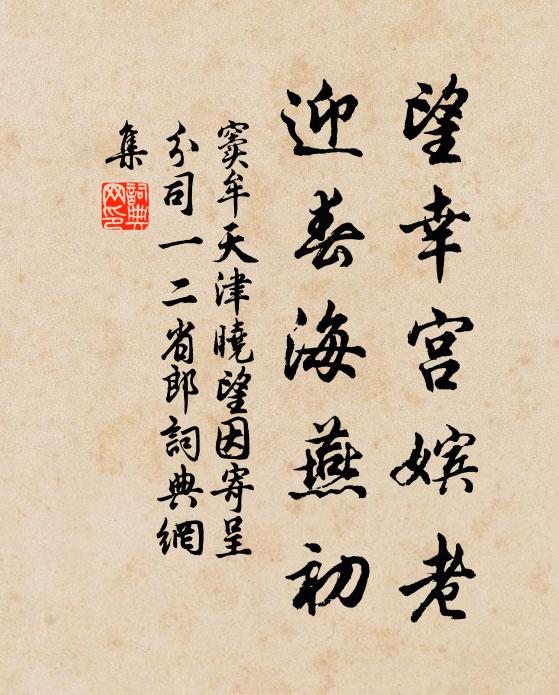 望幸宫嫔老
迎春海燕初
窦牟天津曉望因寄呈
分司一二省郎詞典網
集
詞典
网印